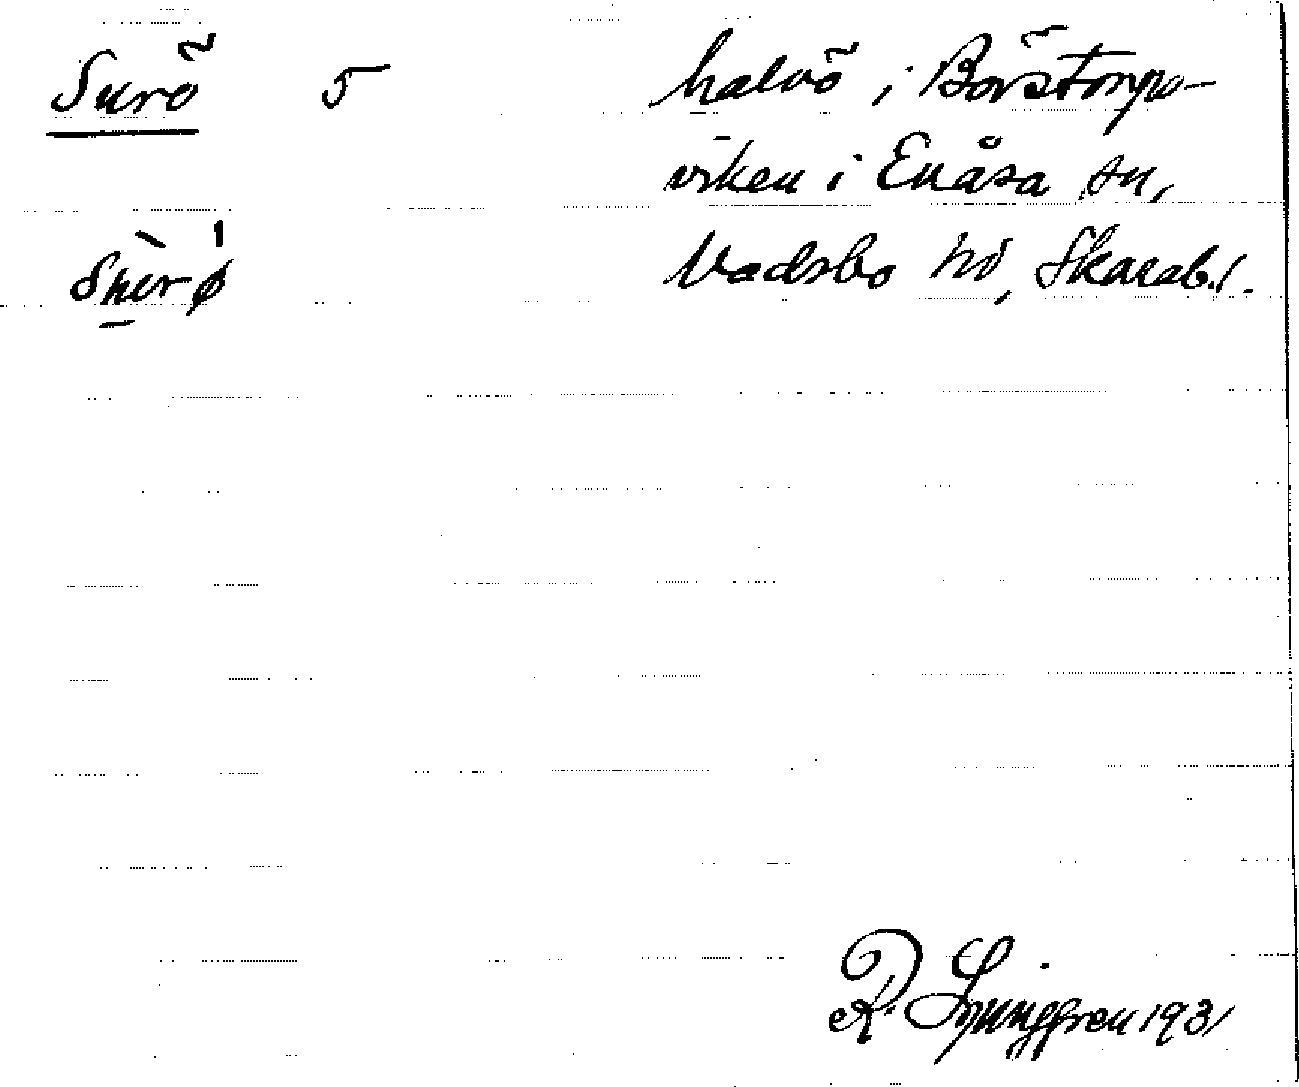 Surö 5 halvö i Börstorps-
viken i Enåsa sn,
Surø Vadsbo hd, Skarab.l.
R. Ljunggren 1931